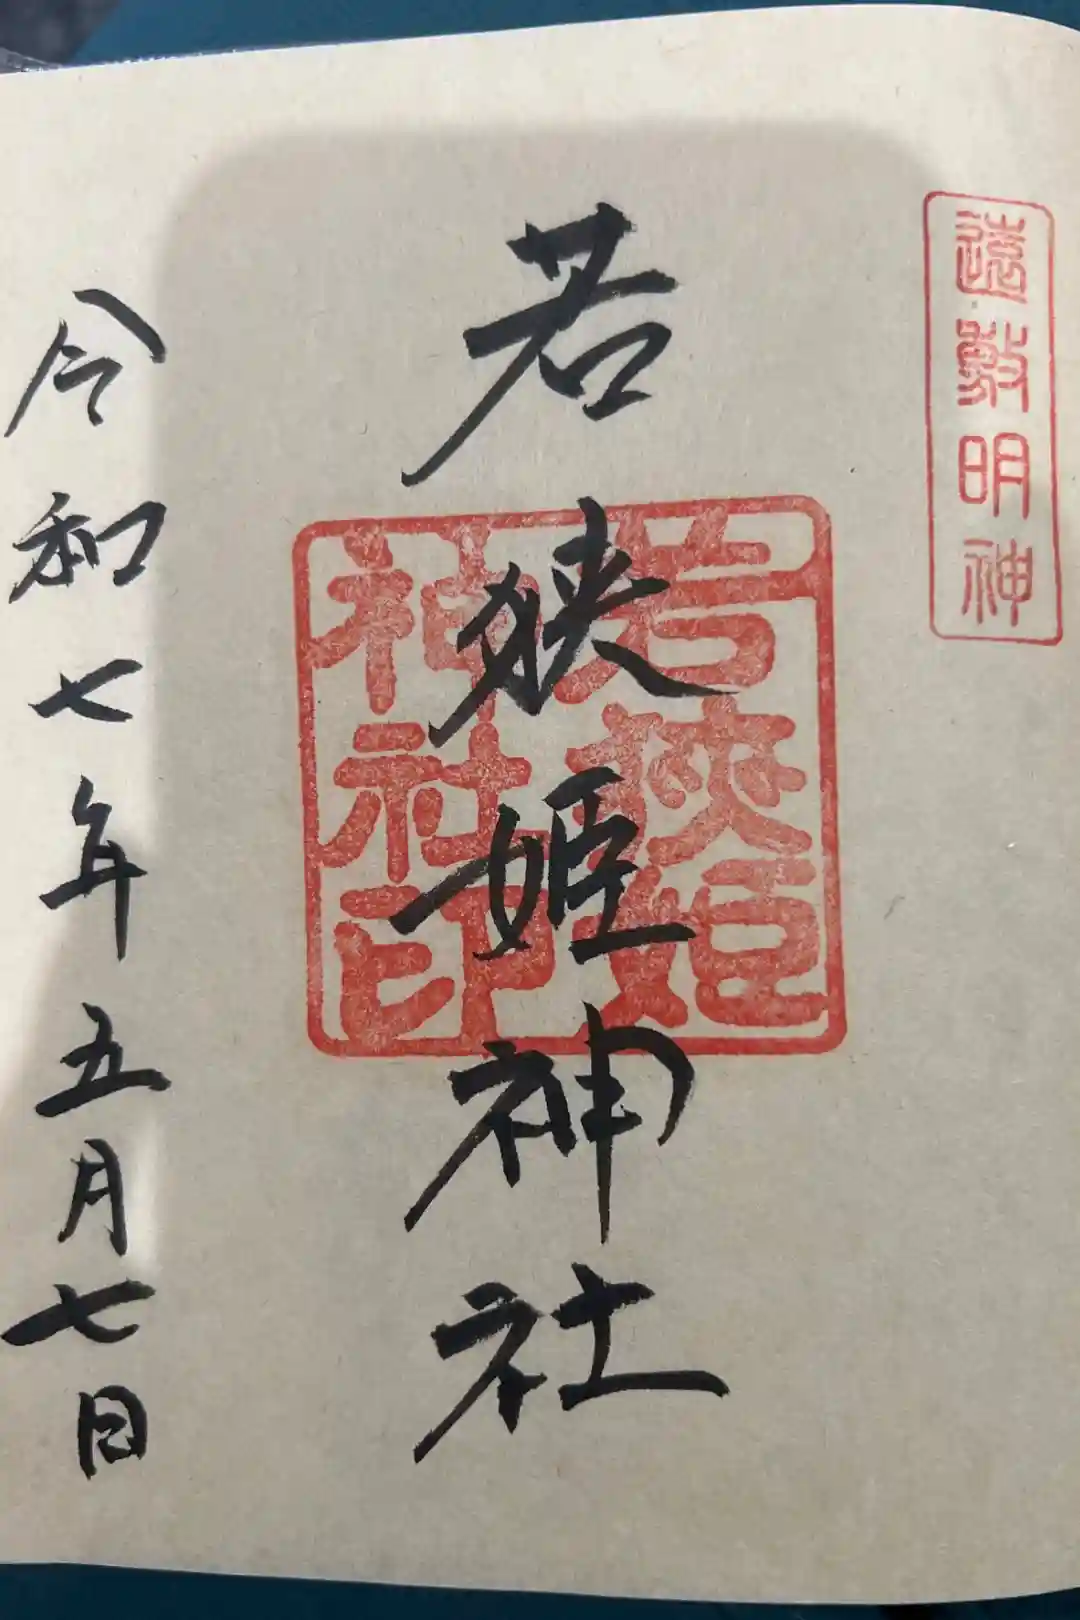 遠敷明神
若狭姫神社
若狹姫
神社印
令和七年五月七日